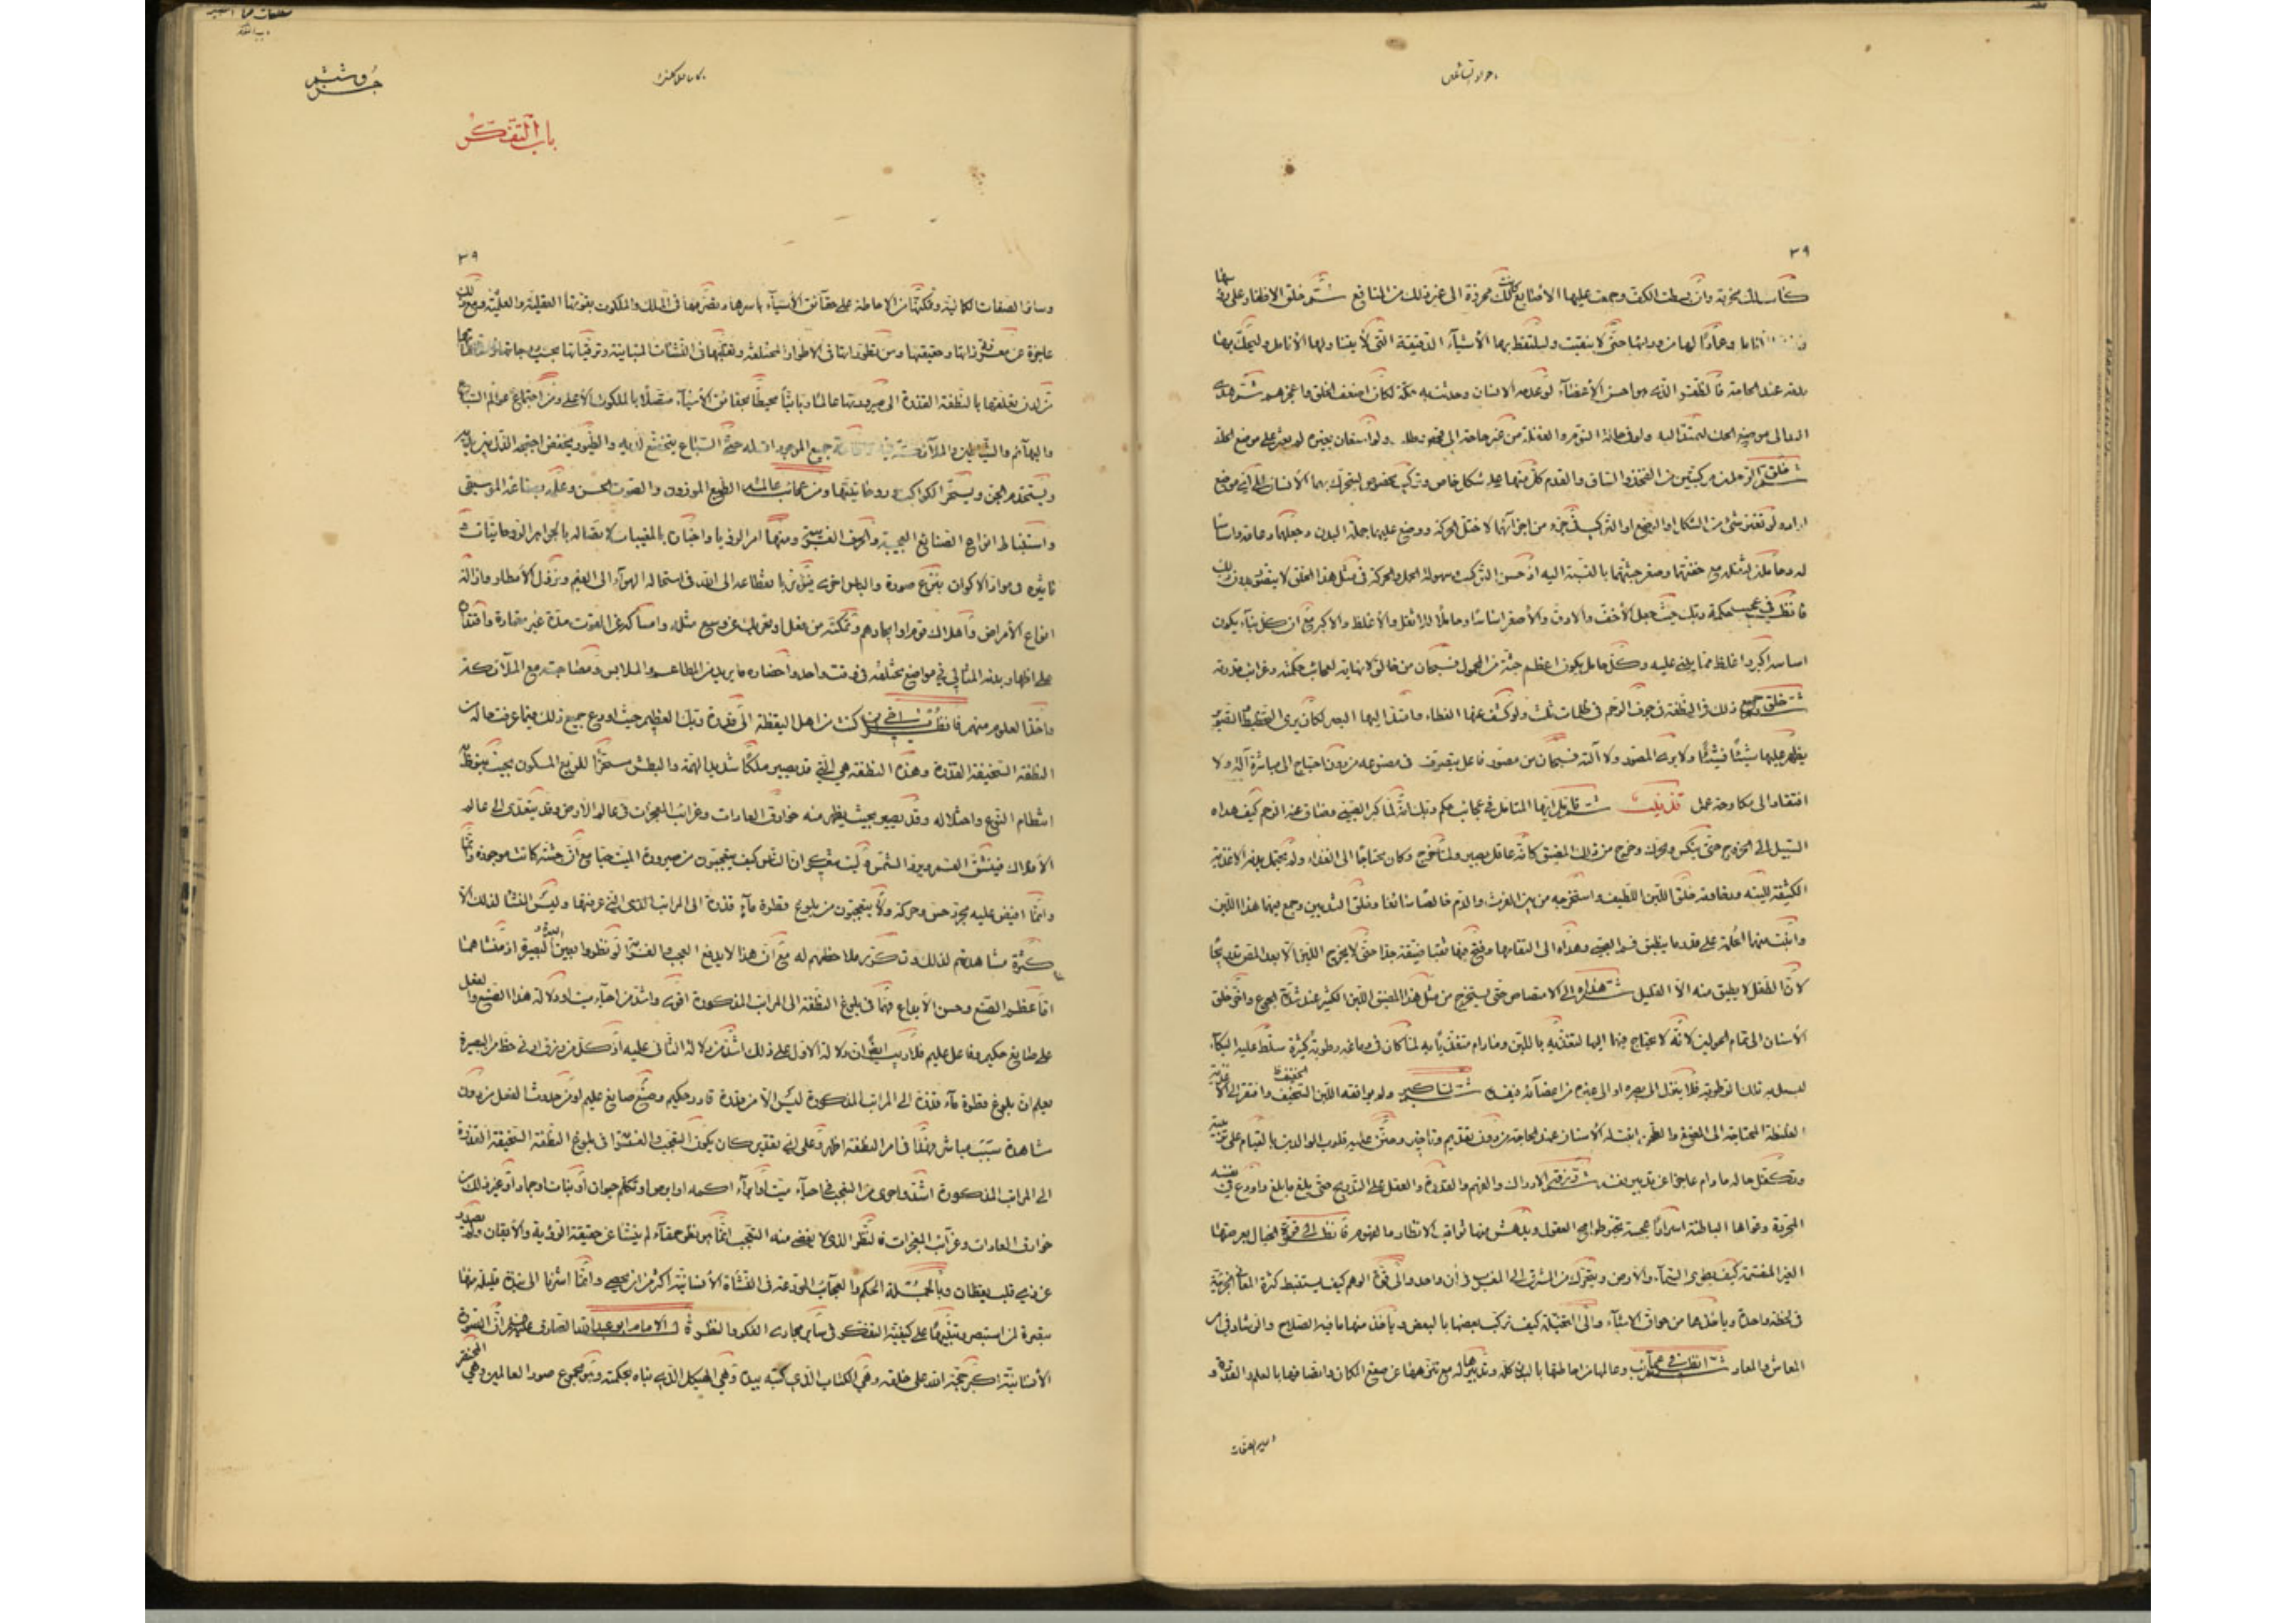 باب التفكر
٣٩
كانت لك مجرفة وان بسطت الكف وجمعت عليها الأصابع كانت لك مجرفة الى غير ذلك من المنافع ثم خلق الاظفار على رؤسها
وعمادا لها من ورائها حتى لا ينقبت وليلتقط بها الأشياء الدقيقة التي لا يتناولها الأنامل وليحك بها
بدنه عند الحاجة فالظفر الذي هو اخس الأعضاء لو عدمه الانسان وحدثت به حكة لكان اضعف الخلق واعجزهم ثم هدى
اليد الى موضع الحك ليمتد اليه ولو في حالة النوم والغفلة من غير حاجة الى فحص وطلب ولو استعان بغيره لم يعثر على موضع الحك
ثم خلق الرجلين مركبتين من الفخذ والساق والقدم كل منهما على شكل خاص وتركيب مخصوص ليتحرك بهما الأنسان الى أي موضع
اراده لو تغير شيء من الشكل او الوضع او التركيب في جزء من اجزائهما لاختل الحركة ووضع عليهما جملة البدن وجعلهما دعامة واساسا
له وحاملين لثقله مع خفتهما وصغر جثتهما بالنسبة اليه اذ حسن التركيب وسهولة الحمل والحركة في مثل هذا الخلق لا يتصور بدون ذلك
فانظر في عجيب حكمة ربك حيث جعل الأخف والادق والأصغر اساسا وحاملا للاثقل والأغلظ والاكبر مع ان كل بناء يكون
اساسه اكبر واغلظ مما يبنى عليه وكل حامل يكون اعظم جثة من المحمول فسبحان من خالق لا نهاية لعجائب حكمته وغرائب قدرته
ثم خلق جميع ذلك في النطفة في جوف الرحم في ظلمات ثلث ولو كشف عنها الغطاء وامتد اليها البصر لكان يرى التخطيط والتصوير
يظهر عليها شيئا فشيئا ولا يرى المصور ولا آلته فسبحان من مصور فاعل يتصرف في مصنوعه من دون احتياج الى مباشرة آلة ولا
افتقار الى مكاوحة عمل تذنيب ثم تأمل ايها المتأمل في عجائب حكم ربك انه لما كبر الصبي وضاق عنه الرحم كيف هداه
السبيل الى الخروج حتى ينكس وتحرك وخرج من ذلك المضيق كأنه عاقل بصير ولما خرج وكان محتاجا الى الغذاء ولم يحتمل بدنه الاغذية
الكثيفة للينه ورخاوته خلق اللبن اللطيف واستخرجه من بين الفرث والدم خالصا سائغا وخلق الثديين وجمع فيهما هذا اللبن
وانبت منهما الحلمة على قدر ما ينطبق فم الصبي وهداه الى التقامها وفتح فيها ثقبا ضيقة جدا حتى لا يخرج اللبن الا بعد المص تدريجا
لان الطفل لا يطيق منه الا القليل ثم هداه الى الامتصاص حتى يستخرج من مثل هذا المضيق اللبن الكثير عند شدة الجوع واخر خلق
الأسنان الى تمام الحولين لانه لا يحتاج فيها اليها لتغذيه باللبن وما دام متغذيا به لما كان في دماغه رطوبة كثيرة سلط عليه البكاء
ليسيل به تلك الرطوبة فلا ينزل الى بصره او الى غيره من اعضائه فيفسده ثم لما كبر ولم يوافقه اللبن السخيف وافتقر الى الاغذية
الغليظة المحتاجة الى المضغ والطحن انبت له الأسنان عند الحاجة من دون تقديم وتأخير وحنن عليه قلوب الوالدين بالقيام على تربيته
وتكفل حاله ما دام عاجزا عن تدبير نفسه ثم رزقه الادراك والفهم والقدرة والعقل على التدريج حتى بلغ ما بلغ واودع في نفسه
المجردة وقواها الباطنة اسرارا عجيبة تتحير طوامح العقول ويدهش فيها ثواقب الانظار والفهوم فانظر الى قوة الخيال بعرضها
الغير المنقسمة كيف يطوى السماء والأرض ويتحرك من المشرق الى المغرب في آن واحد والى قوة الوهم كيف يستنبط كثرة المعاني الجزئية
في لحظة واحدة ويأخذها من حواق الاشياء والى المتخيلة كيف تركب بعضها بالبعض ويأخذ منها ما فيه الصلاح والرشاد في امر
المعاش والمعاد ثم انظر في عجائب وعالمها من احاطتها بالبدن كله وتدبيرها له مع تنزهها عن صقع المكان واتصافها بالعلم والقدرة و
٣٩
وسائر الصفات الكمالية وتمكنها من الاحاطة على حقائق الأشياء بأسرها وتصرفها في الملك والملكوت بقوتها العقلية والعملية ومع ذلك
عاجزة عن معرفة ذاتها وحقيقتها ومن تطوراتها في الاطوار المختلفة وتقلبها في النشئات المتباينة وترقياتها بحسب درجاتها
من لدن تعلقها بالنطفة القذرة الى صيرورتها عالما ربانيا محيطا بحقائق الأشياء متصلا بالملكوت الأعلى ومن اجتماع عوالم السباع
والبهائم والشياطين والملائكة فيه جميع الموجودات له حتى السباع يتخشع لديه والطيور يخفض اجنحة الذل بين يديه
ويستخدم الجن ويسخر الكواكب وروحانياتها ومن عجائب عالمه الطبع الموزون والصوت الحسن وعلمه بصناعة الموسيقى
واستنباط انواع الصنائع العجيبة والحرف الغريبة ومنها امر الرؤيا واخباره بالمغيبات لاتصاله بالجواهر الروحانيات و
تأثيره في مواد الاكوان بنزع صورة والباس اخرى فيؤثر بانقطاعه الى الله في استحالة الهواء الى الغيم ونزول الأمطار وازالة
انواع الأمراض واهلاك قوم وانجادهم وتمكنه من فعل او تحريك عن وسع مثله وامساكه عن القوت مدة غير معتادة واقتداره
على اظهار بدنه المثالي في مواضع مختلفة في وقت واحد واحضاره ما يريد من المطاعم والملابس ومصاحبته مع الملائكة
واخذ العلوم منهم فانظر يا اخي ان كنت من اهل اليقظة الى قدرة ربك العظيم حيث اودع جميع ذلك فيما عرفت حاله من
النطفة السخيفة القذرة وهذه النطفة هي التي قد يصير ملكا شديد القوة والبطش مسخرا للربع المسكون بحيث ينوط به
انتظام النوع واختلاله وقد يصير بحيث يظهر منه خوارق العادات وغرائب المعجزات في عالم الأرض وقد يتعدى الى عالم
الأفلاك فيشق القمر ويرد الشمس وليت شعري ان الناس كيف يتعجبون من صيرورة الميت حيا مع ان جثته كانت موجودة
وانما افيض عليه مجرد حس وحركة ولا يتعجبون من بلوغ قطرة ماء قذرة الى المراتب الذي التي عرفتها وليس المنشأ لذلك الا
كثرة مشاهدتهم لذلك وتكرر ملاحظتهم له مع ان هذا لا يدفع العجب والغرابة لو نظروا بعين البصيرة اذ منشأهما
اما عظم الصنع وحسن الأبداع فهما في بلوغ النطفة الى المراتب المذكورة اقوى واشد من احياء ميت او دلالة هذا الصنع والفعل
على صانع حكيم وفاعل عليم فلا ريب ايضا ان دلالة الاول على ذلك اشد من دلالة الثاني عليه اذ كل من رزق ادنى حظ من البصيرة
يعلم ان بلوغ قطرة ماء قذرة الى المراتب المذكورة ليس الا من قدرة قادر حكيم وصنع صانع عليم او من حدوث الفعل من دون
مشاهدة سبب مباشر فهذا في امر النطفة اظهر وعلى اي تقدير كان يكون التعجب والغرابة في بلوغ النطفة السخيفة القذرة
الى المراتب المذكورة اشد واحرى من التعجب في احياء ميت او ابراء اكمه او ابرص او تكلم حيوان او نبات او جماد او غير ذلك من
خوارق العادات وغرائب المعجزات فالنظر الذي لا يقضى منه التعجب انما هو نظر حمقاء لم ينشأ عن حقيقة الرؤية والأيقان ولم يصدر
عن ذي قلب يقظان وبالجملة الحكم والعجائب المودعة في النشأة الأنسانية اكثر من ان يحصى وانما اشرنا الى نبذة قليلة منها
تبصرة لمن استبصر وتنبيها على كيفية التفكر في سائر مجاري الفكر والنظر قال الامام ابو عبد الله الصادق ان الصورة
الأنسانية اكبر حجة الله على خلقه وهي الكتاب الذي كتبه بيده وهي الهيكل الذي بناه بحكمته وهي مجموع صور العالمين وهي المختصر